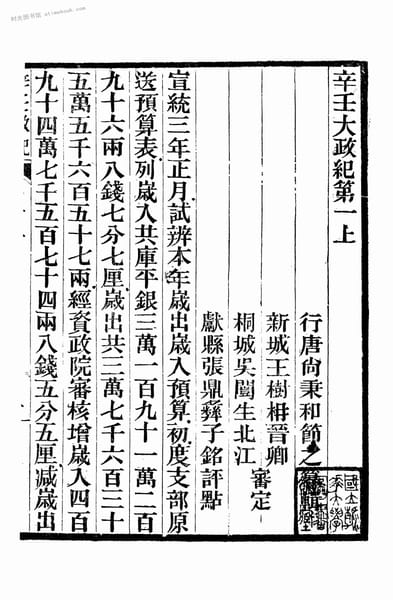 时光图书馆 atimebook.com
辛壬大政紀第一上
行唐尙秉和節之
新城王樹枏晉卿
桐城吳闓生北江
審定
獻縣張鼎彝子銘評點
宣統三年正月試辦本年歲出歲入預算初度支部原
送預算表列歲入共庫平銀三萬一百九十一萬二百
九十六兩八錢七分七厘歲出共三萬七千六百三十
五萬五千六百五十七兩經資政院審核增歲入四百
九十四萬七千五百七十四兩八錢五分五厘減歲出